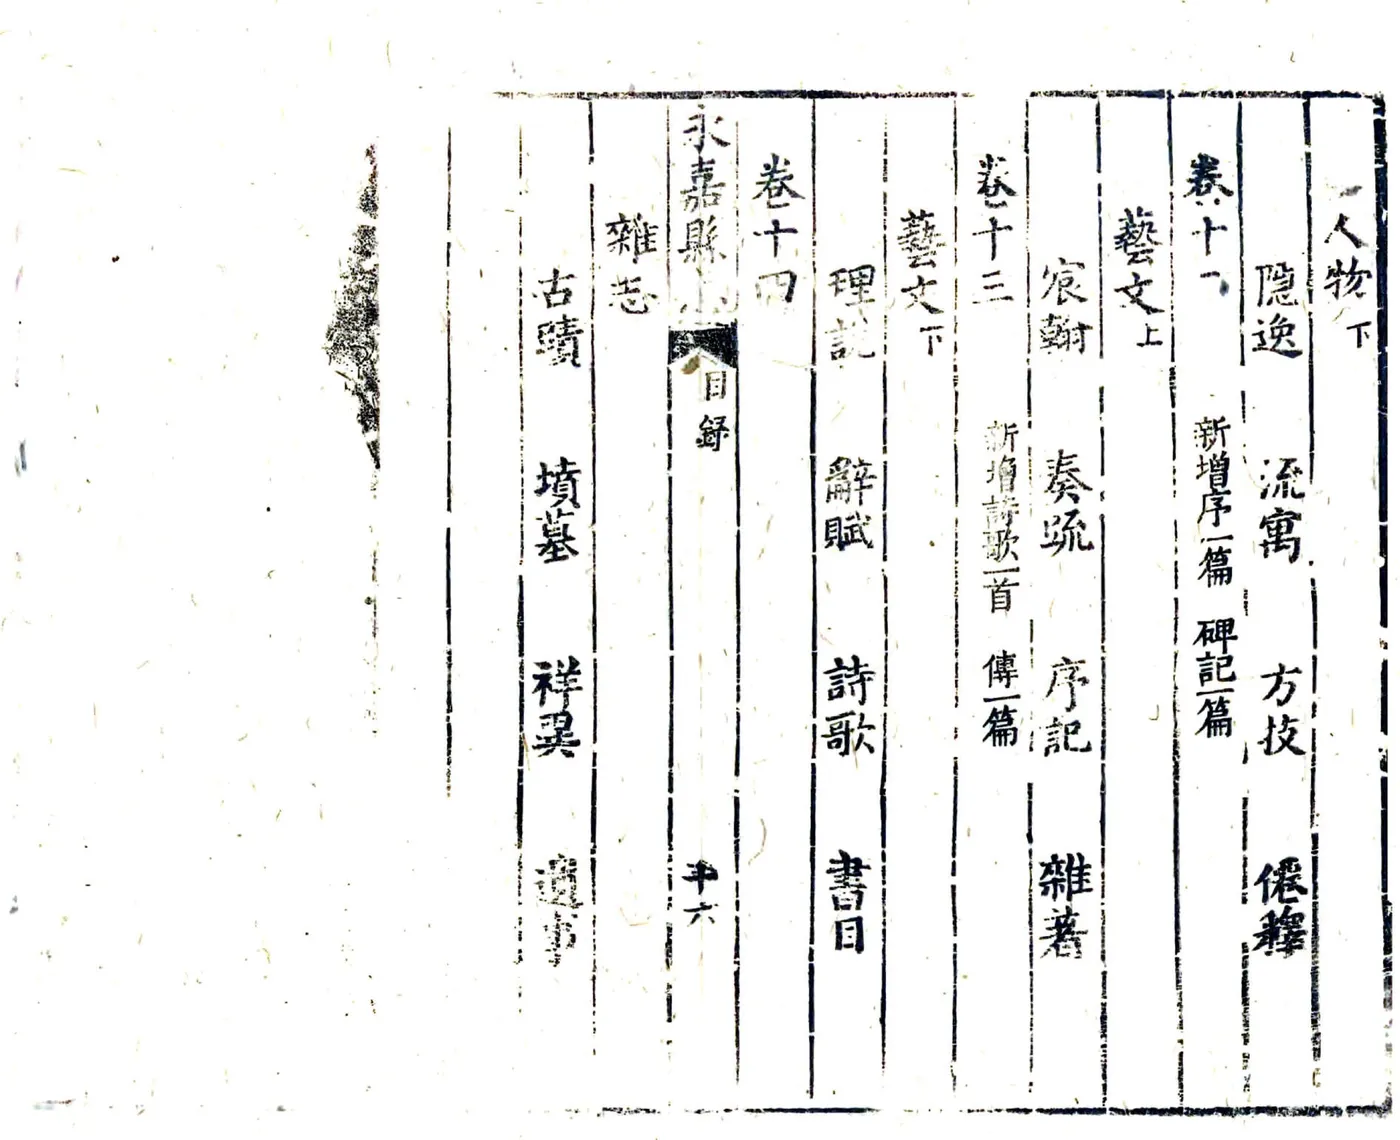 人物下
隱逸 流寓 方技 僊釋
卷十 新增序一篇 碑記一篇
藝文上
宸翰 奏疏 序記 雜著
卷十三 新增詩歌一首 傳一篇
藝文下
理說 辭賦 詩歌 書目
卷十四
雜志
永嘉縣 目録 六
古蹟 墳墓 祥異 遺事